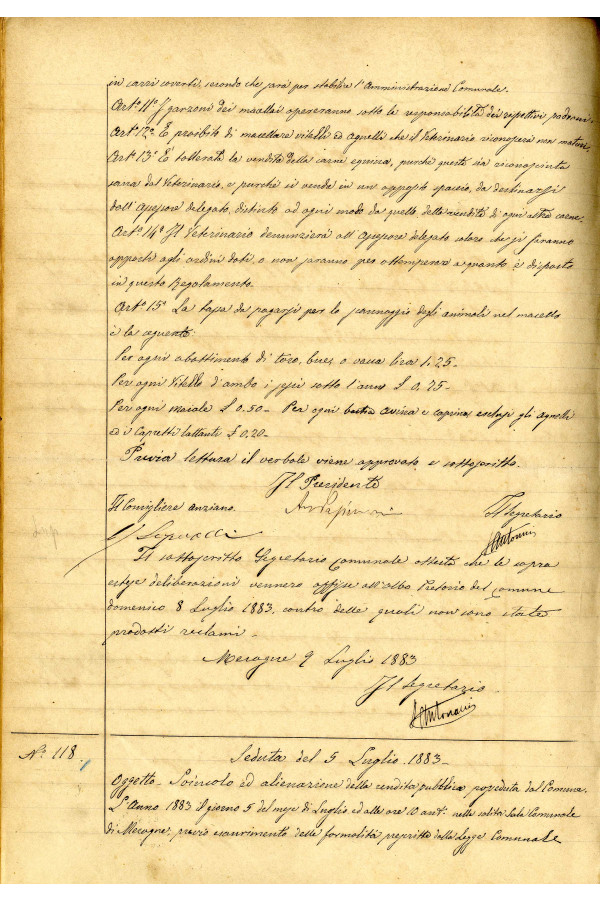 in carri coverti, secondo che sarà per stabilire l'Amministrazione Comunale.
Art.º 11º I garzoni dei macelli opereranno sotto la responsabilità dei rispettivi padroni.
Art.º 12º È proibito di macellare vitelli ed agnelli che il Veterinario riconoscerà non maturi.
Art.º 13º È tollerata la vendita della carne equina, purchè questa sia riconosciuta
sana dal Veterinario, e purchè si venda in un apposito spaccio, da destinarsi
dall'Assessore delegato, distinto ad ogni modo da quello della vendita di ogni altra carne.
Art.º 14º Il Veterinario denunzierà all'Assessore delegato coloro che si saranno
opposti agli ordini dati, o non saranno per ottemperare a quanto è disposto
in questo Regolamento.
Art.º 15º La tassa da pagarsi per lo scannaggio degli animali nel macello
è la seguente:
Per ogni abattimento di toro, bue, o vacca lira 1,25-
Per ogni Vitello d'ambo i sessi sotto l'anno £ 0,75-
Per ogni maiale £ 0.50- Per ogni bestia ovina e caprina esclusi gli agnelli
ed i Capretti lattanti £ 0,20-
Previa lettura il verbale viene approvato e sottoscritto.
Il Presidente
Il Consigliere anziano.
Il Segretario
Il sottoscritto Segretario Comunale attesta che le sopra
estese deliberazioni vennero affisse all'albo Pretorio del Comune
domenica 8 Luglio 1883, contro delle quali non sono state
prodotti reclami-
9 Luglio 1883
Il Segretario
Nº 118.
Seduta del 5 Luglio 1883-
Oggetto- Svincolo ed alienazione della rendita pubblica posseduta dal Comune.
L'Anno 1883 il giorno 5 del mese di Luglio ed alle ore 10 ant. nella solita Sala Comunale
di previo esaurimento delle formalità prescritte dalla Legge Comunale